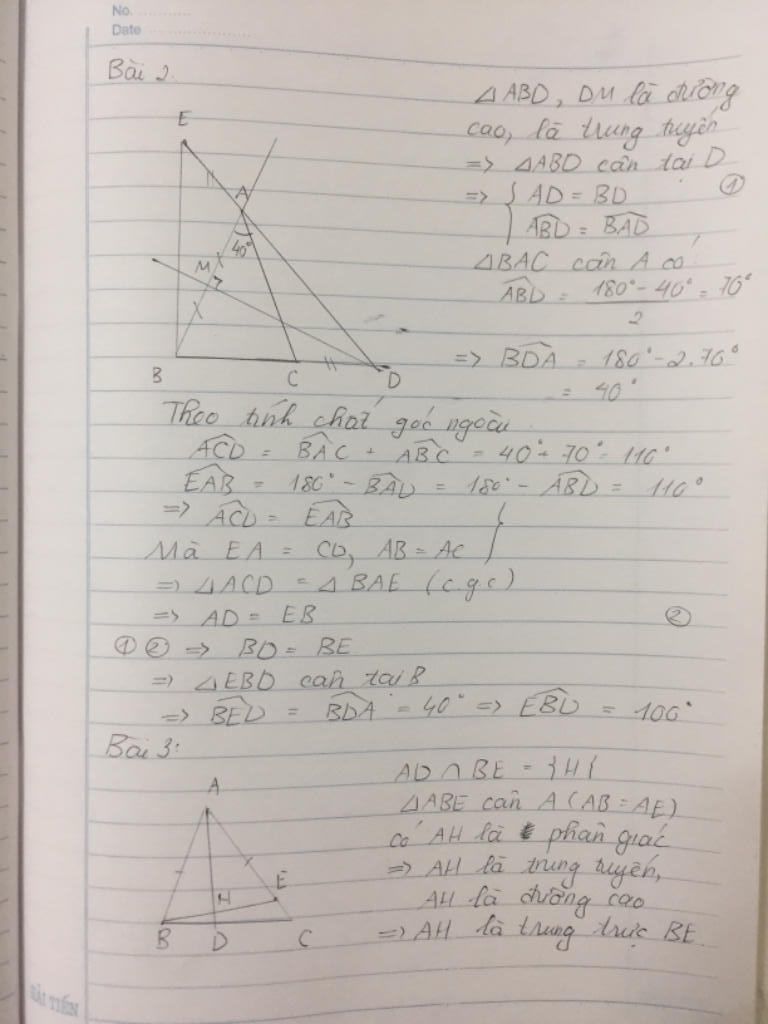 No.
Date
Bài 2.
△ABD, DM là đường
cao, là trung tuyến
=> △ABD cân tại D
=> { AD = BD ①
ABD = BAD
△BAC cân A có
ABD = 180° - 40° / 2 = 70°
=> BDA = 180° - 2.70°
= 40°
E
A
40°
M
B
C
D
Theo tính chất góc ngoài
ACD = BAC + ABC = 40° + 70° = 110°
EAB = 180° - BAD = 180° - ABD = 110°
=> ACD = EAB
Mà EA = CD, AB = AC
=> △ACD = △BAE (c.g.c)
=> AD = EB ②
① ② => BD = BE
=> △EBD cân tại B
=> BED = BDA = 40° => EBD = 100°
Bài 3:
AD ∩ BE = {H{
△ABE cân A (AB = AE)
có AH là phân giác
=> AH là trung tuyến,
AH là đường cao
=> AH là trung trực BE.
A
H
E
B
D
C
HẢI TIẾN